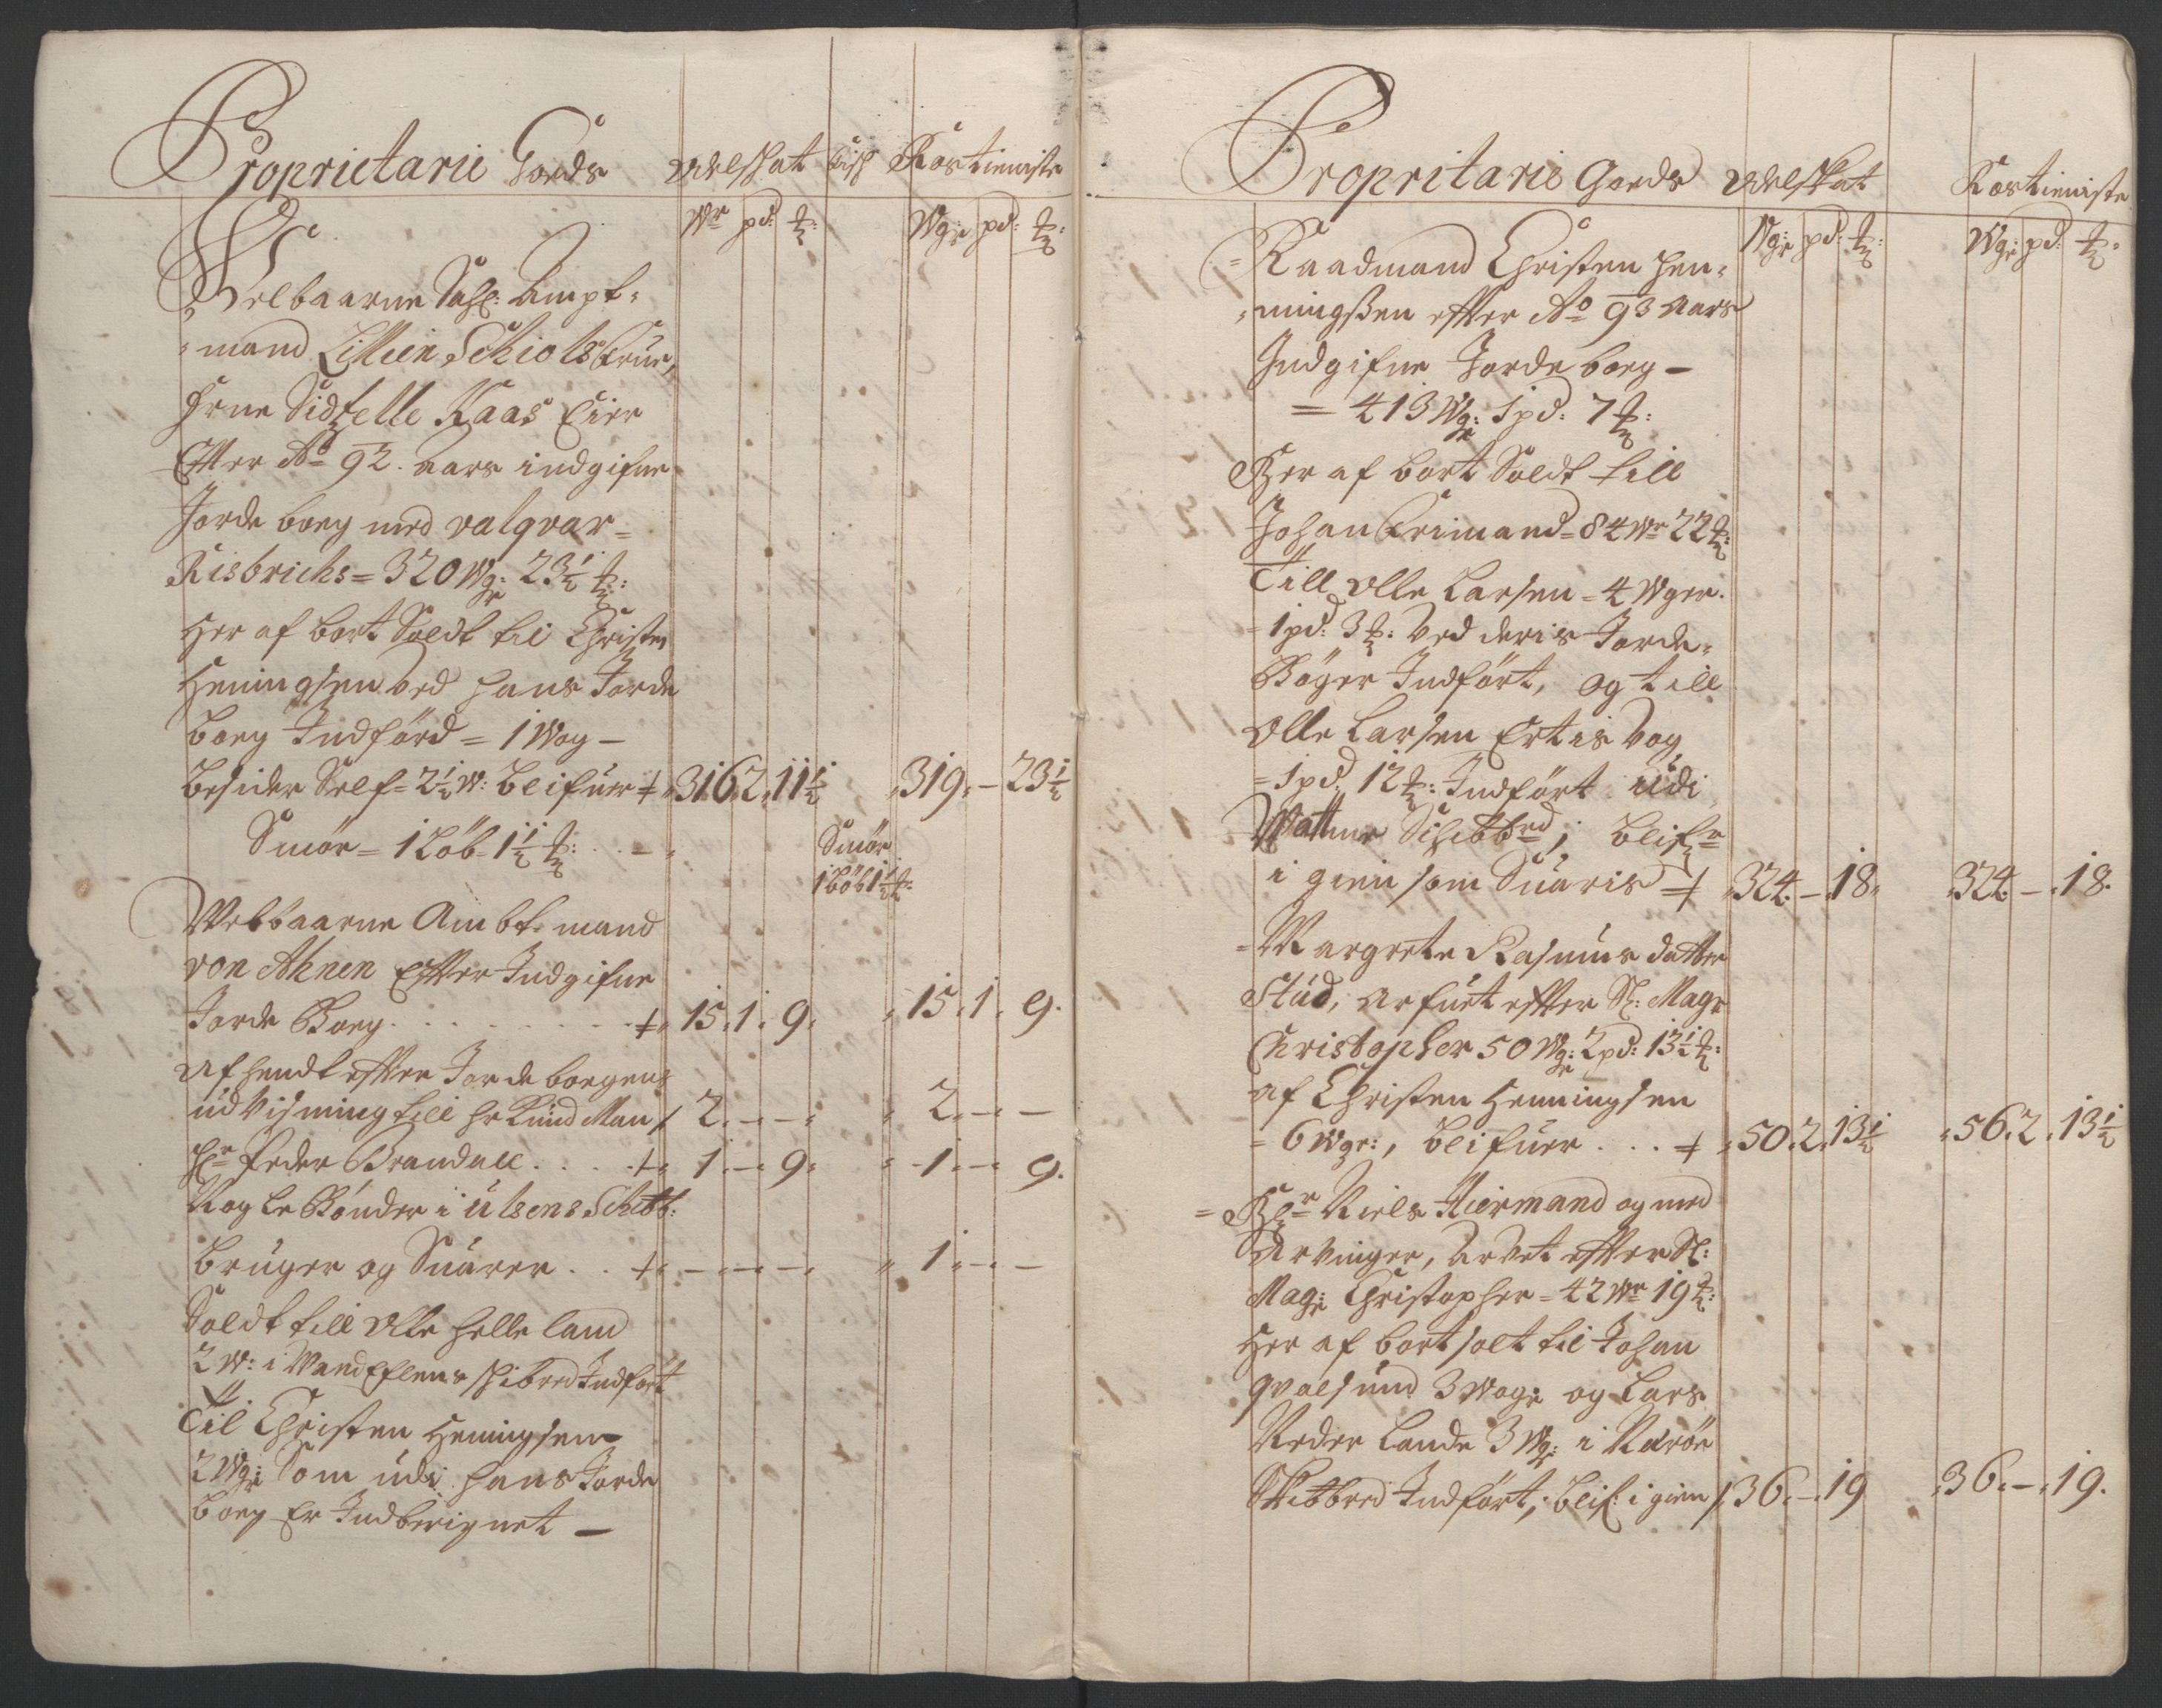 Proprietarie Gords Odelskat bÿsk Rostieniste
Wr pd: ℔: Wgr: pd: ℔:
Welbaarne Sahl: Ampt-
mand Lillien Schiols frue,
Frue Sidzelle Kaas Eier
Efter Ao 92. aars indgifne
Jorde boeg med valgvar-
Risbrichs = 320 Wgr: 23½ ℔:
Her af bort Soldt til Christen
Heningsen ved hans Jorde
boeg Indförd = 1 Wog -
besider Self = 2½ W: blifuer 316. 2. 11½ 319. - 23½
Smör = 1 Löb - 1½ ℔: Smör
1 Löb 1½ ℔:
Welbaarne Ambt-mand
von Ahnen efter Indgifne
Jorde Boeg . . . 15. 1. 9. 15. 1. 9.
Afhendt efter Jordeboegens
udvisning till hr Knud Man 2. - - 2. - -
Hr Peder Brandall . . . 1. - 9. 1. - 9.
Nogle Bönder i Ulsens Schibb:
bruger og Suarer . . - - - 1. - -
Soldt till Olle Helleland
2 W: i WandEflens skibred Indfört
Til Christen Heningsen
2 Wgr: Som udi hans Jorde
boeg Er Indberignet -
Propritarie Gords Odelskat Rostieniste
Wgr: pd: ℔: Wgr: pd: ℔:
Raadmand Christen Hen-
ningßen efter Ao 93 aars
Indgifne Jordeboeg -
= 413 Wgr: 1 pd: 7 ℔:
Her af bort Soldt till
Johan Frimand = 84 Wr 22 ℔:
Till Olle Larsen = 4 Wger.
1 pd: 3 ℔: ved deris Jorde-
Böger Indfört, og till
Olle Larsen Ertisvog
= 1 pd: 12 ℔: Indfört udi
Wattne Schibbrd; blifr
igien som Suaris 324. - 18. 324. - 18.
Margrete Rasmus datter
Stud, arfuet efter Sl: Magr
Christopher 50 Wgr: 2 pd: 13½ ℔:
af Christen Henningsen
= 6 Wgr:, blifuer . . . 50. 2. 13½ 56. 2. 13½
Hr Niels Hiermand og med
Arvinger, arvet efter Sl:
Magr: Christopher = 42 Wr 19 ℔:
Her af bort solt til Johan
Qvalsund 3 Wogr og Lars
Nederlande 3 Wgr: i Næröe
Skibbred Indfört, blif: igien 36. - 19 36. - 19.